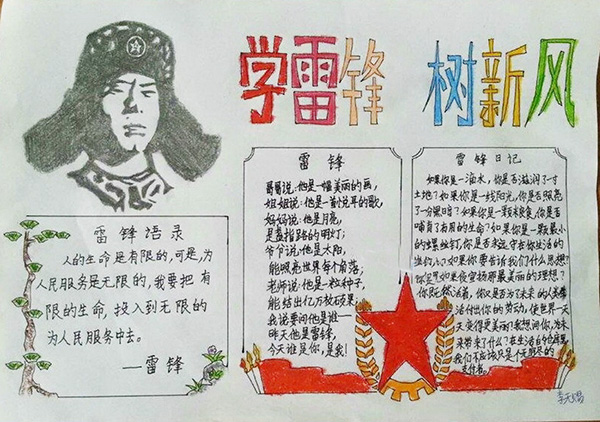 学雷锋 树新风
雷锋语录
人的生命是有限的,可是,为
人民服务是无限的,我要把有
限的生命,投入到无限的
为人民服务中去。
—雷锋
雷锋
哥哥说:他是一幅美丽的画,
姐姐说:他是一首悦耳的歌,
妈妈说:他是月亮,
是盏指路的明灯;
爷爷说:他是太阳,
能照亮世界各个角落;
老师说:他是一粒种子,
能结出亿万枚硕果;
我说要问他是谁—
昨天他是雷锋,
今天谁是你,是我!
雷锋日记
如果你是一滴水,你是否滋润了一寸
土地?如果你是一线阳光,你是否照亮
了一分黑暗?如果你是一颗粮食,你是否
哺育了有用的生命?如果你是一颗最小
的螺丝钉,你是否永远守在你生活的
如果你要告诉我们什么思想?
你是否 宣扬那最美丽的理想?
你既然活着,你又是否为了未来的人类
付出你的劳动,使世界一天
天变得更美丽?我想问你,为未
来带来了什么?在生活的仓库里,
我们不应该只是个无穷尽的
支付者。